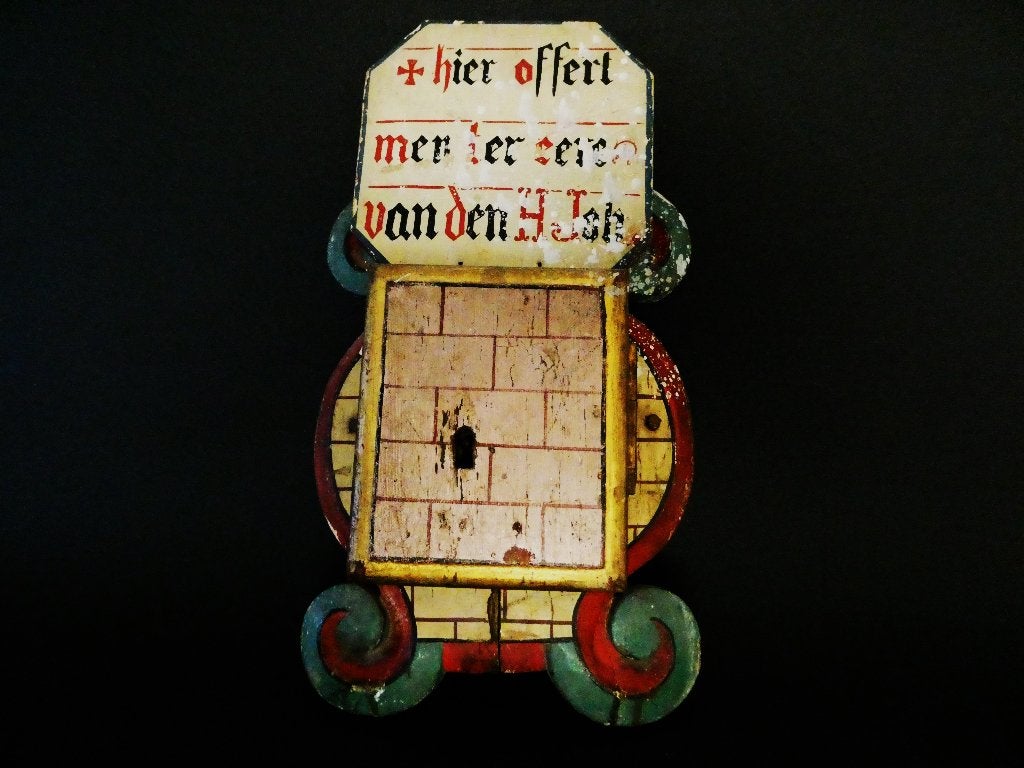 ✠ hier offert
men ter eere
van den H Joh